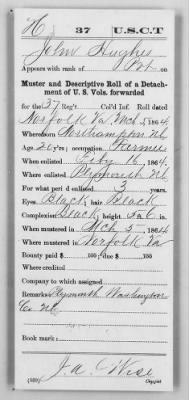 H 37 U.S.C.T
John Hughes
Appears with rank of Pvt on
Muster and Descriptive Roll of a Detach-
ment of U. S. Vols. forwarded
for the 37 Reg't Col'd Inf. Roll dated
Norfolk Va Mch 5, 1864
Where born Northampton NC
Age 20 y'rs; occupation Farmer
When enlisted Feby 16, 1864
Where enlisted Plymouth NC
For what period enlisted 3 years.
Eyes Black; hair Black
Complexion Black; height 5 ft. 6 in.
When mustered in Mch 5, 1864
Where mustered in Norfolk Va
Bounty paid $ 100; due $ 100
Where credited
Company to which assigned
Remarks: Plymouth Washington
Co. NC
Book mark:
Ja. Wise
(339) Copyist